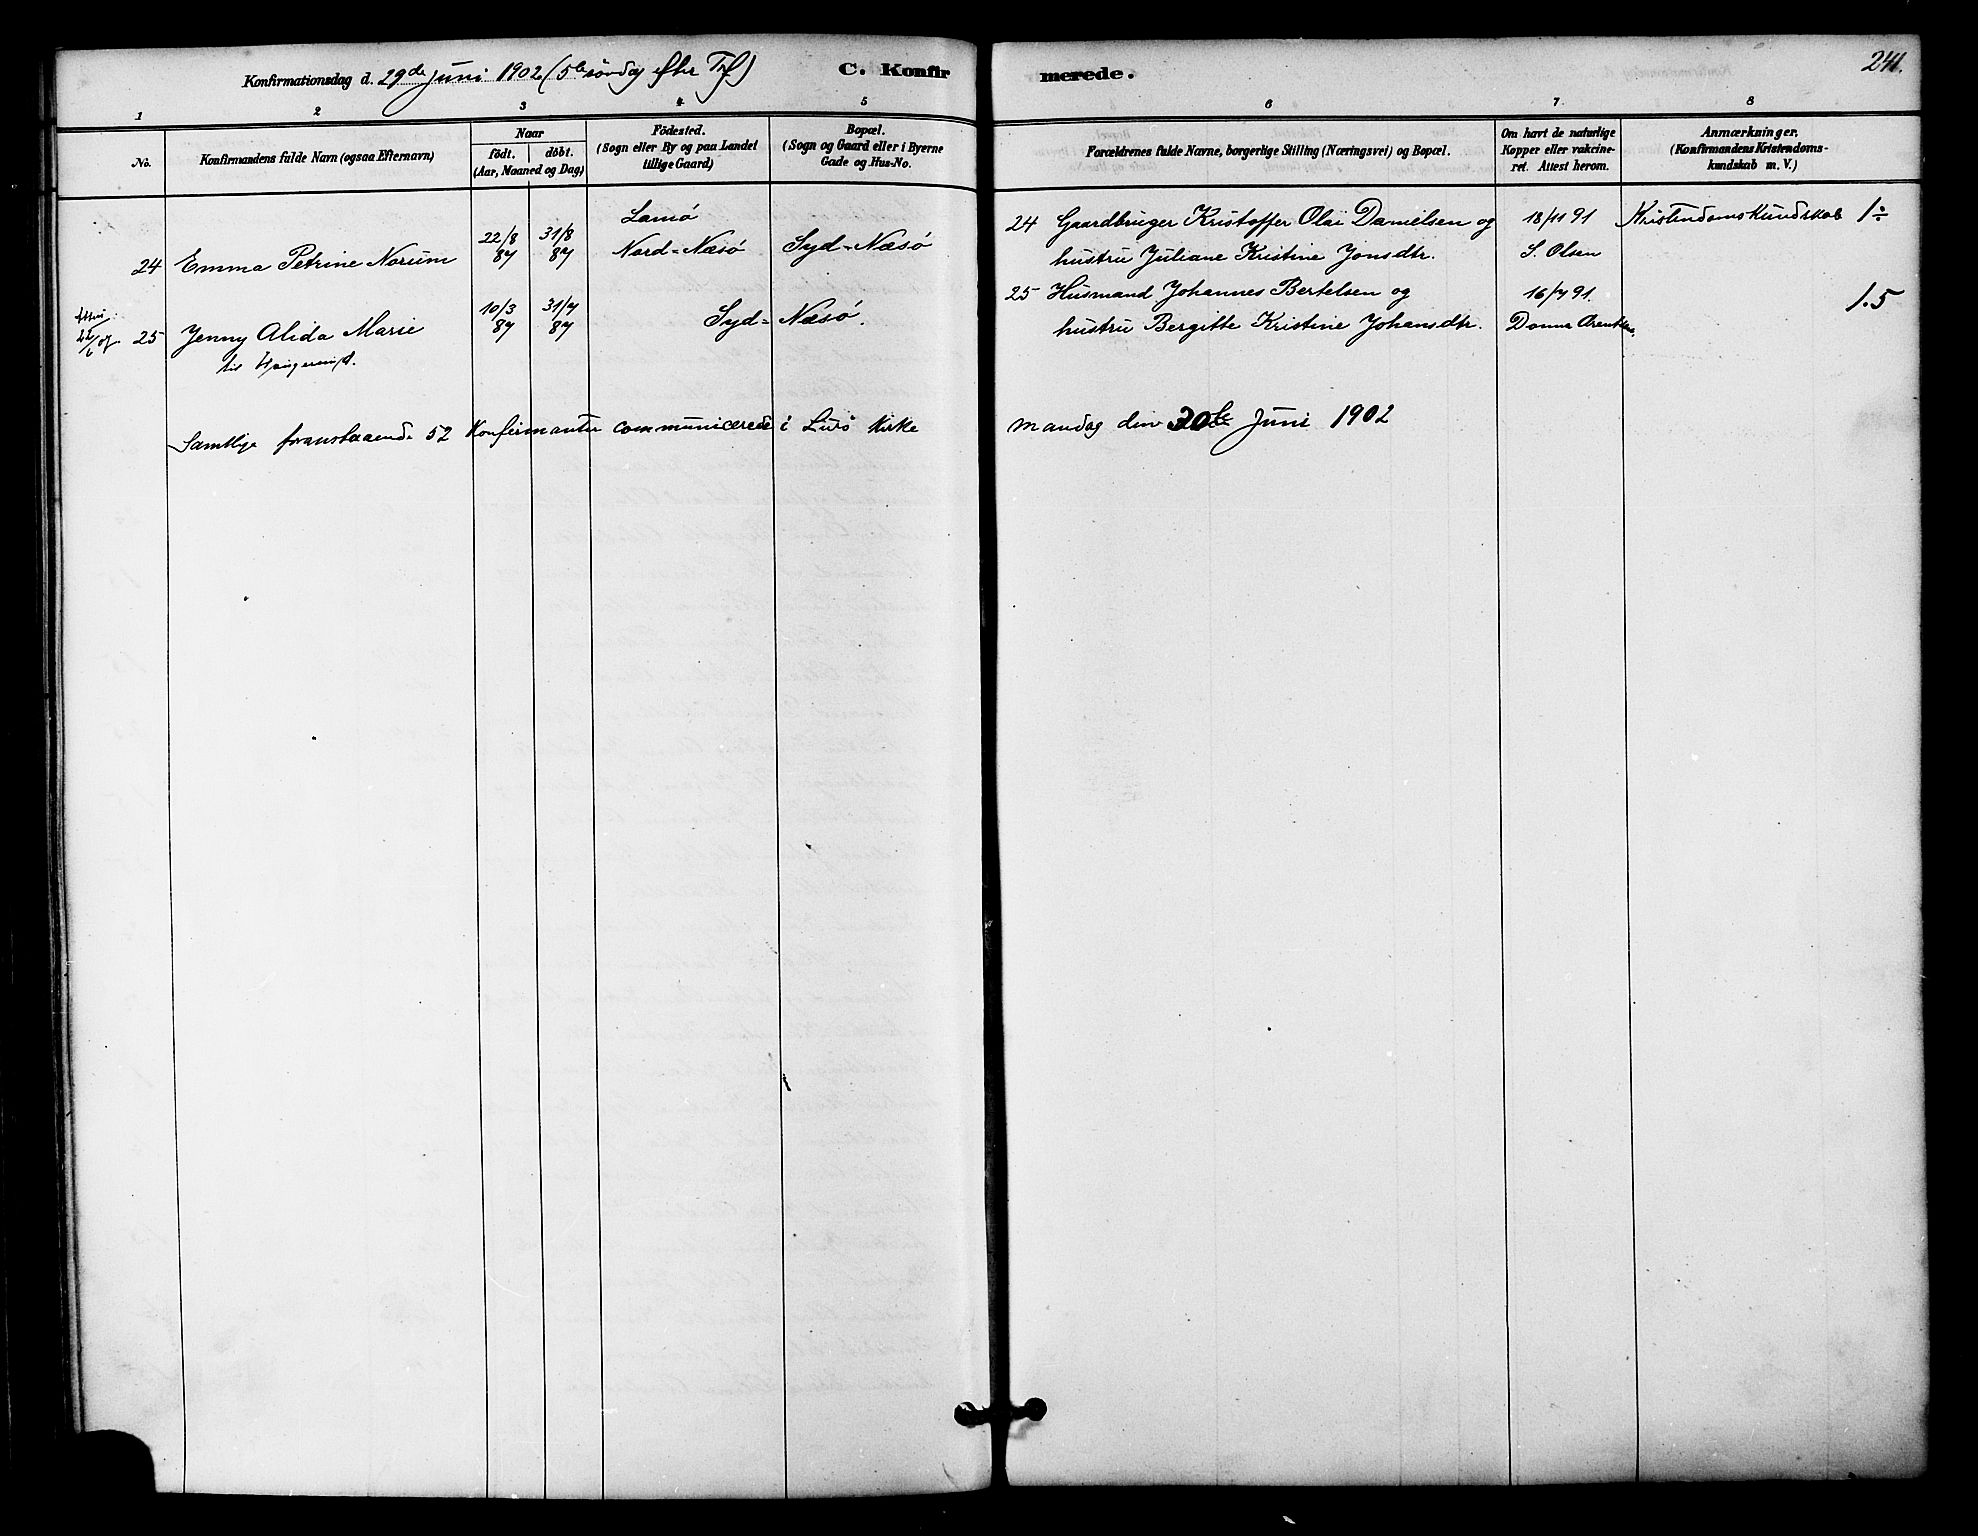 Konfirmationsdag d. 29de Juni 1902 (5te søndag efter Tref)
C. Konfirmerede.
241.
1 2 3 4 5 6 7 8
No.
Konfirmandens fulde Navn (ogsaa Efternavn)
Naar
födt. döbt.
(Aar, Maaned og Dag)
Födested.
(Sogn eller By og paa Landet
tillige Gaard)
Bopæl.
(Sogn og Gaard eller i Byerne
Gade og Hus-No.
Forældrenes fulde Navne, borgerlige Stilling (Næringsvei) og Bopæl.
Om havt de naturlige
Kopper eller vakcine-
ret. Attest herom.
Anmærkninger,
(Konfirmandens Kristendoms-
kundskab m. V.)
24 Emma Petrine Norum
22/8 87
31/8 87
Lamø
Nord-Næsø
Syd-Næsø
24 Gaardbruger Kristoffer Olai Danielsen og
hustru Juliane Kristine Jonsdtr.
18/11 91
S. Olsen
Kristendomskundskab 1÷
25 Jenny Alida Marie
10/3 87
31/7 87
Syd-Næsø.
25 Husmand Johannes Bertelsen og
hustru Bergitte Kristine Johansdtr.
16/7 91
Donna
1.5
Samtlige foranstaaende 52 Konfirmanter communicerede i Kirke
mandag den 30te Juni 1902